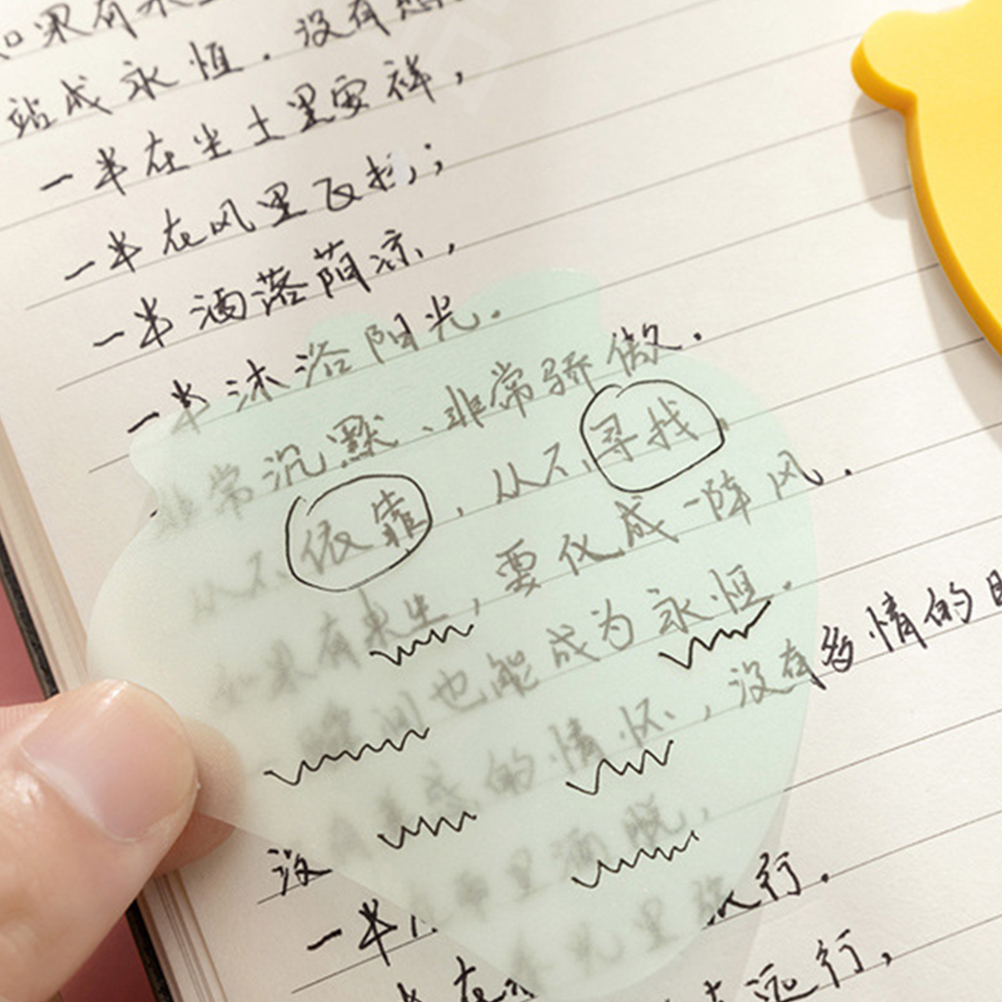 如果有来
站成永恒．没有
一半在尘土里安祥，
一半在风里飞扬；
一半洒落荫凉，
一半沐浴阳光．
非常沉默、非常骄傲．
从不依靠，从不寻找，
如果有来生，要化成一阵风．
瞬间也能成为永恒．
没有 的情怀，没有多情的
里洒脱，
一半 里 行．
远行，